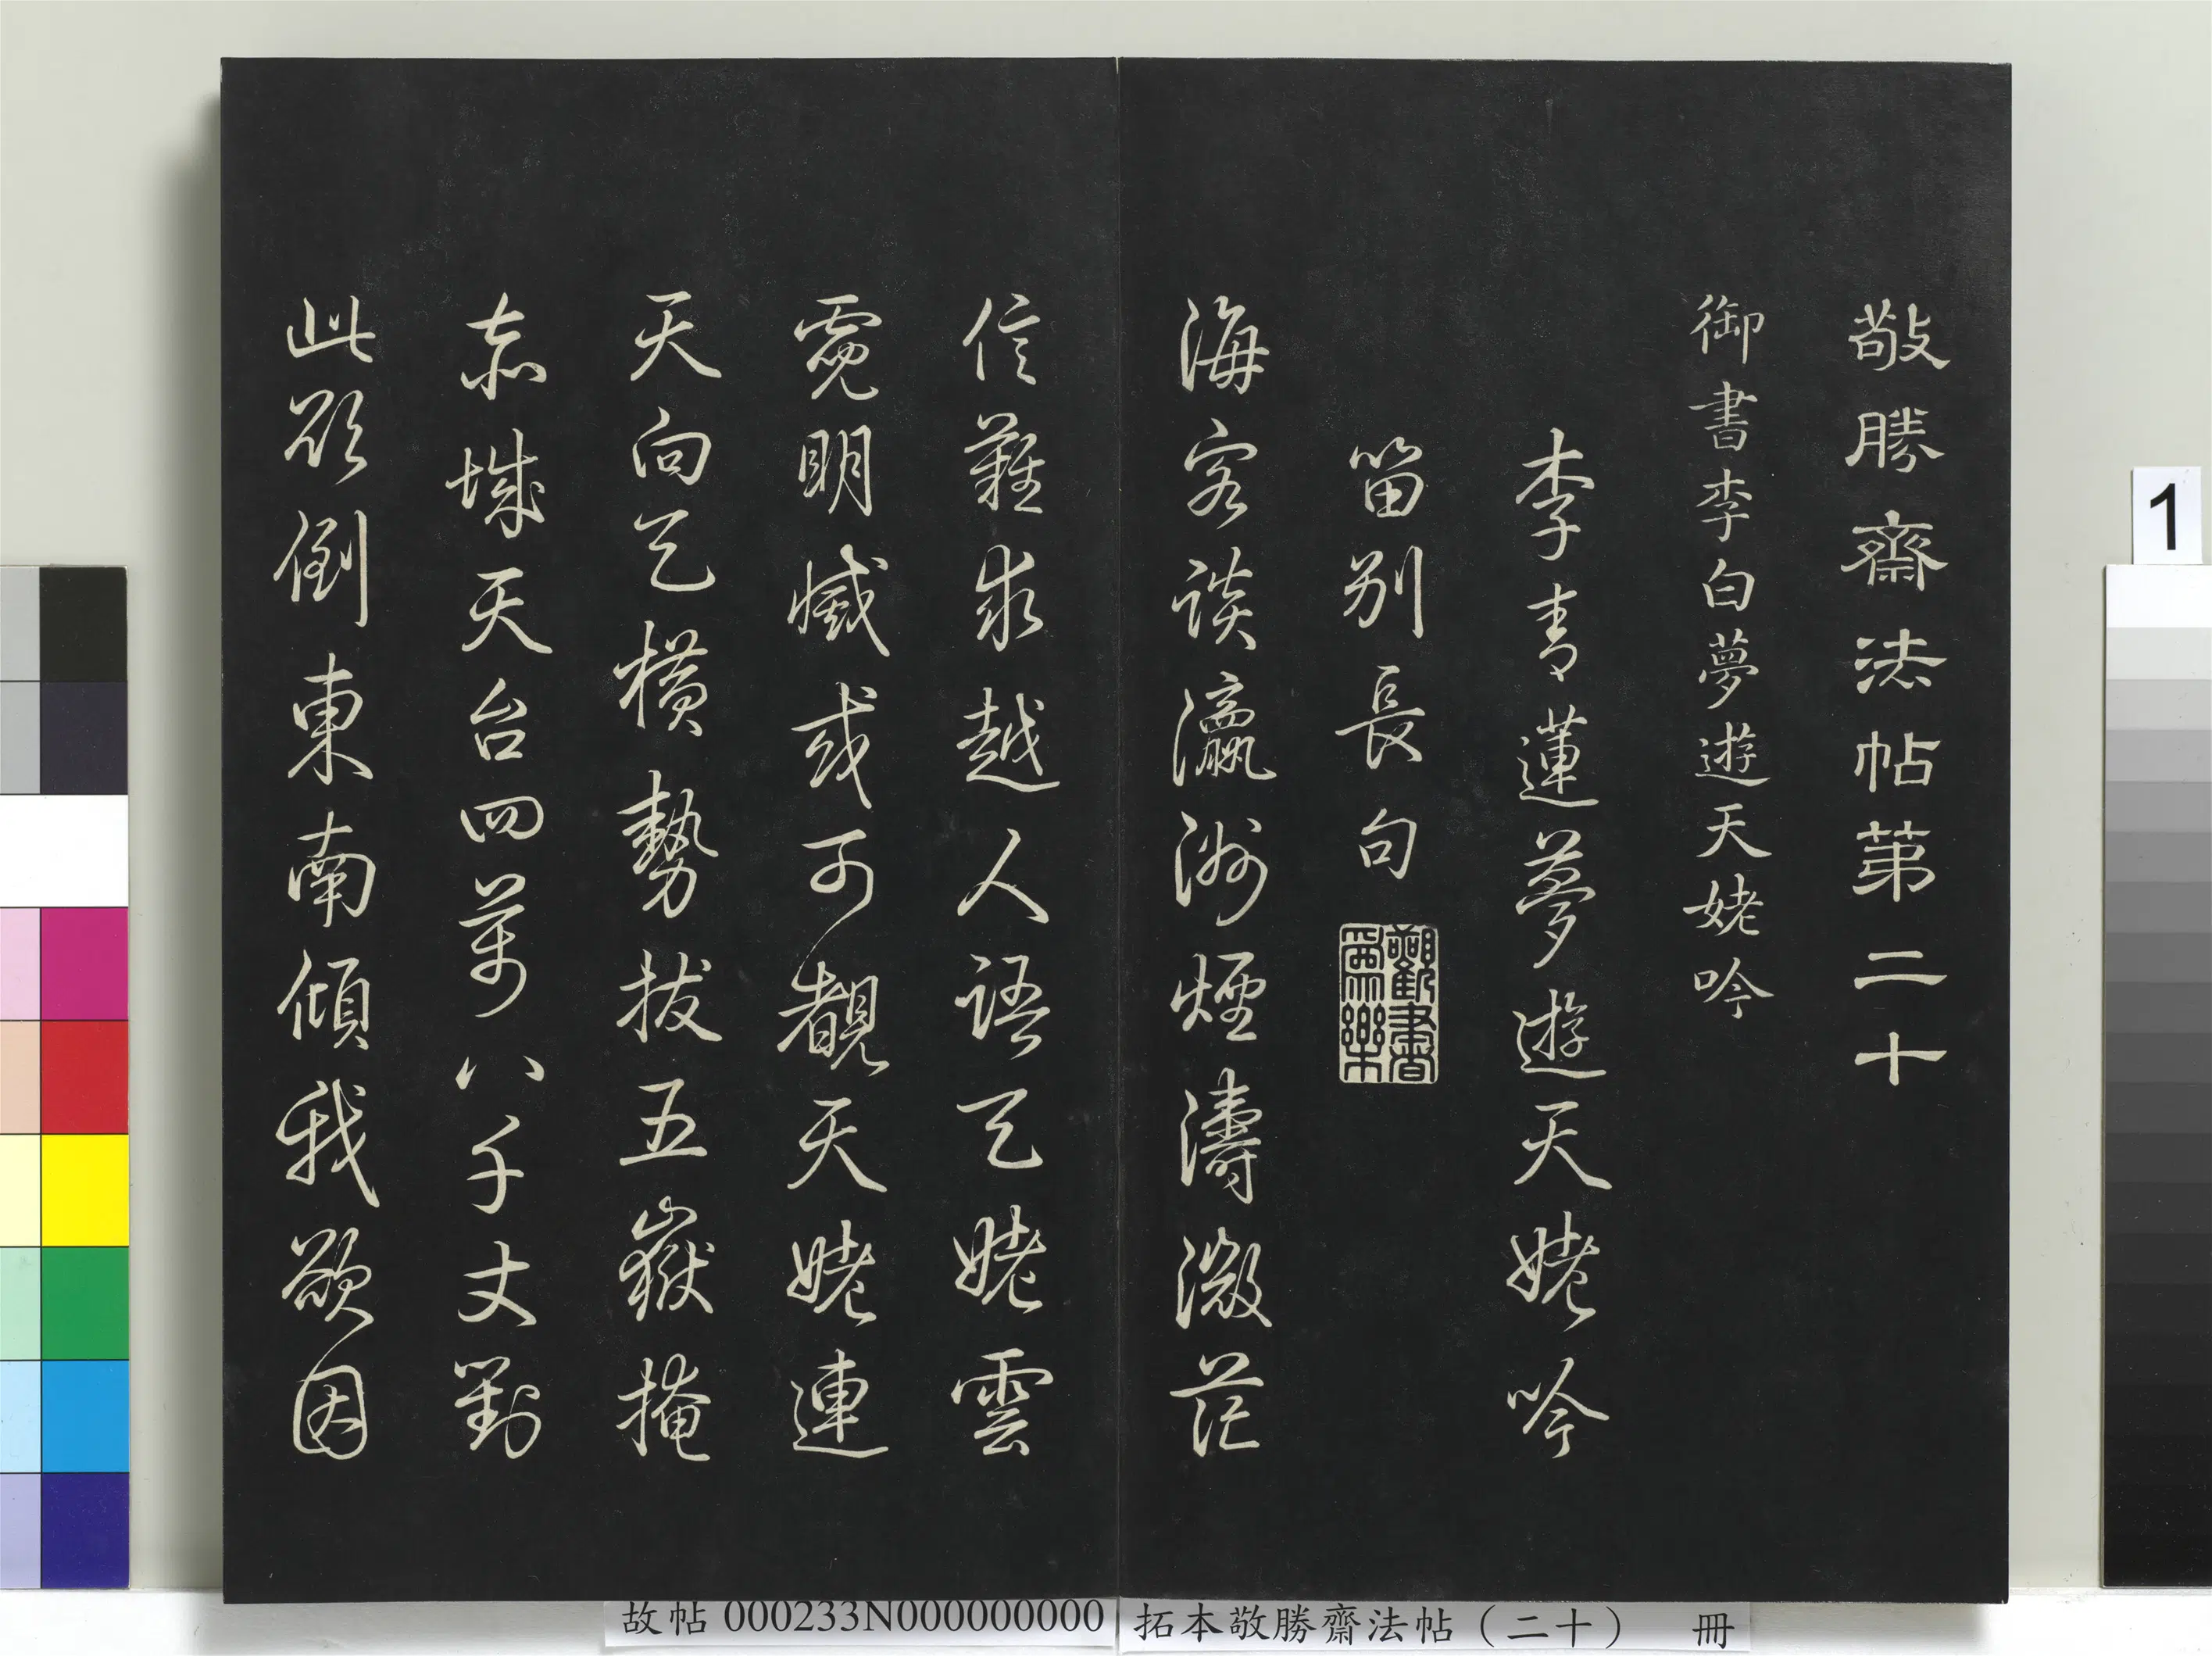 敬勝齋法帖第二十
御書李白夢遊天姥吟
李青蓮夢遊天姥吟
笛別長句
觀書為樂
海客談瀛洲煙濤微茫
信難求越人語天姥雲
霓明滅或可覩天姥連
天向天橫勢拔五嶽掩
赤城天台四萬八千丈對
此欲倒東南傾我欲因
1
故帖 000233N000000000
拓本敬勝齋法帖（二十） 冊